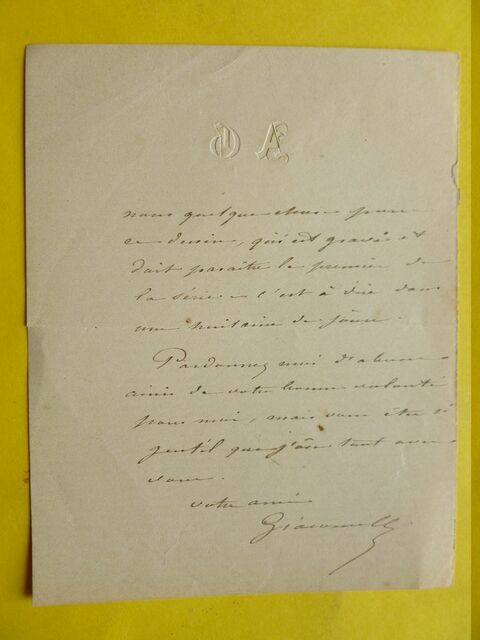 A G
nous quelque chose pour
ce dessin, qui est gravé et
doit paraître le premier de
la série - c'est à dire dans
une huitaine de jours.
Pardonnez moi d'abuser
ainsi de votre bonne volonté
pour moi, mais vous êtes si
gentil que j'ose tout avec
vous.
votre ami
Giacomelli